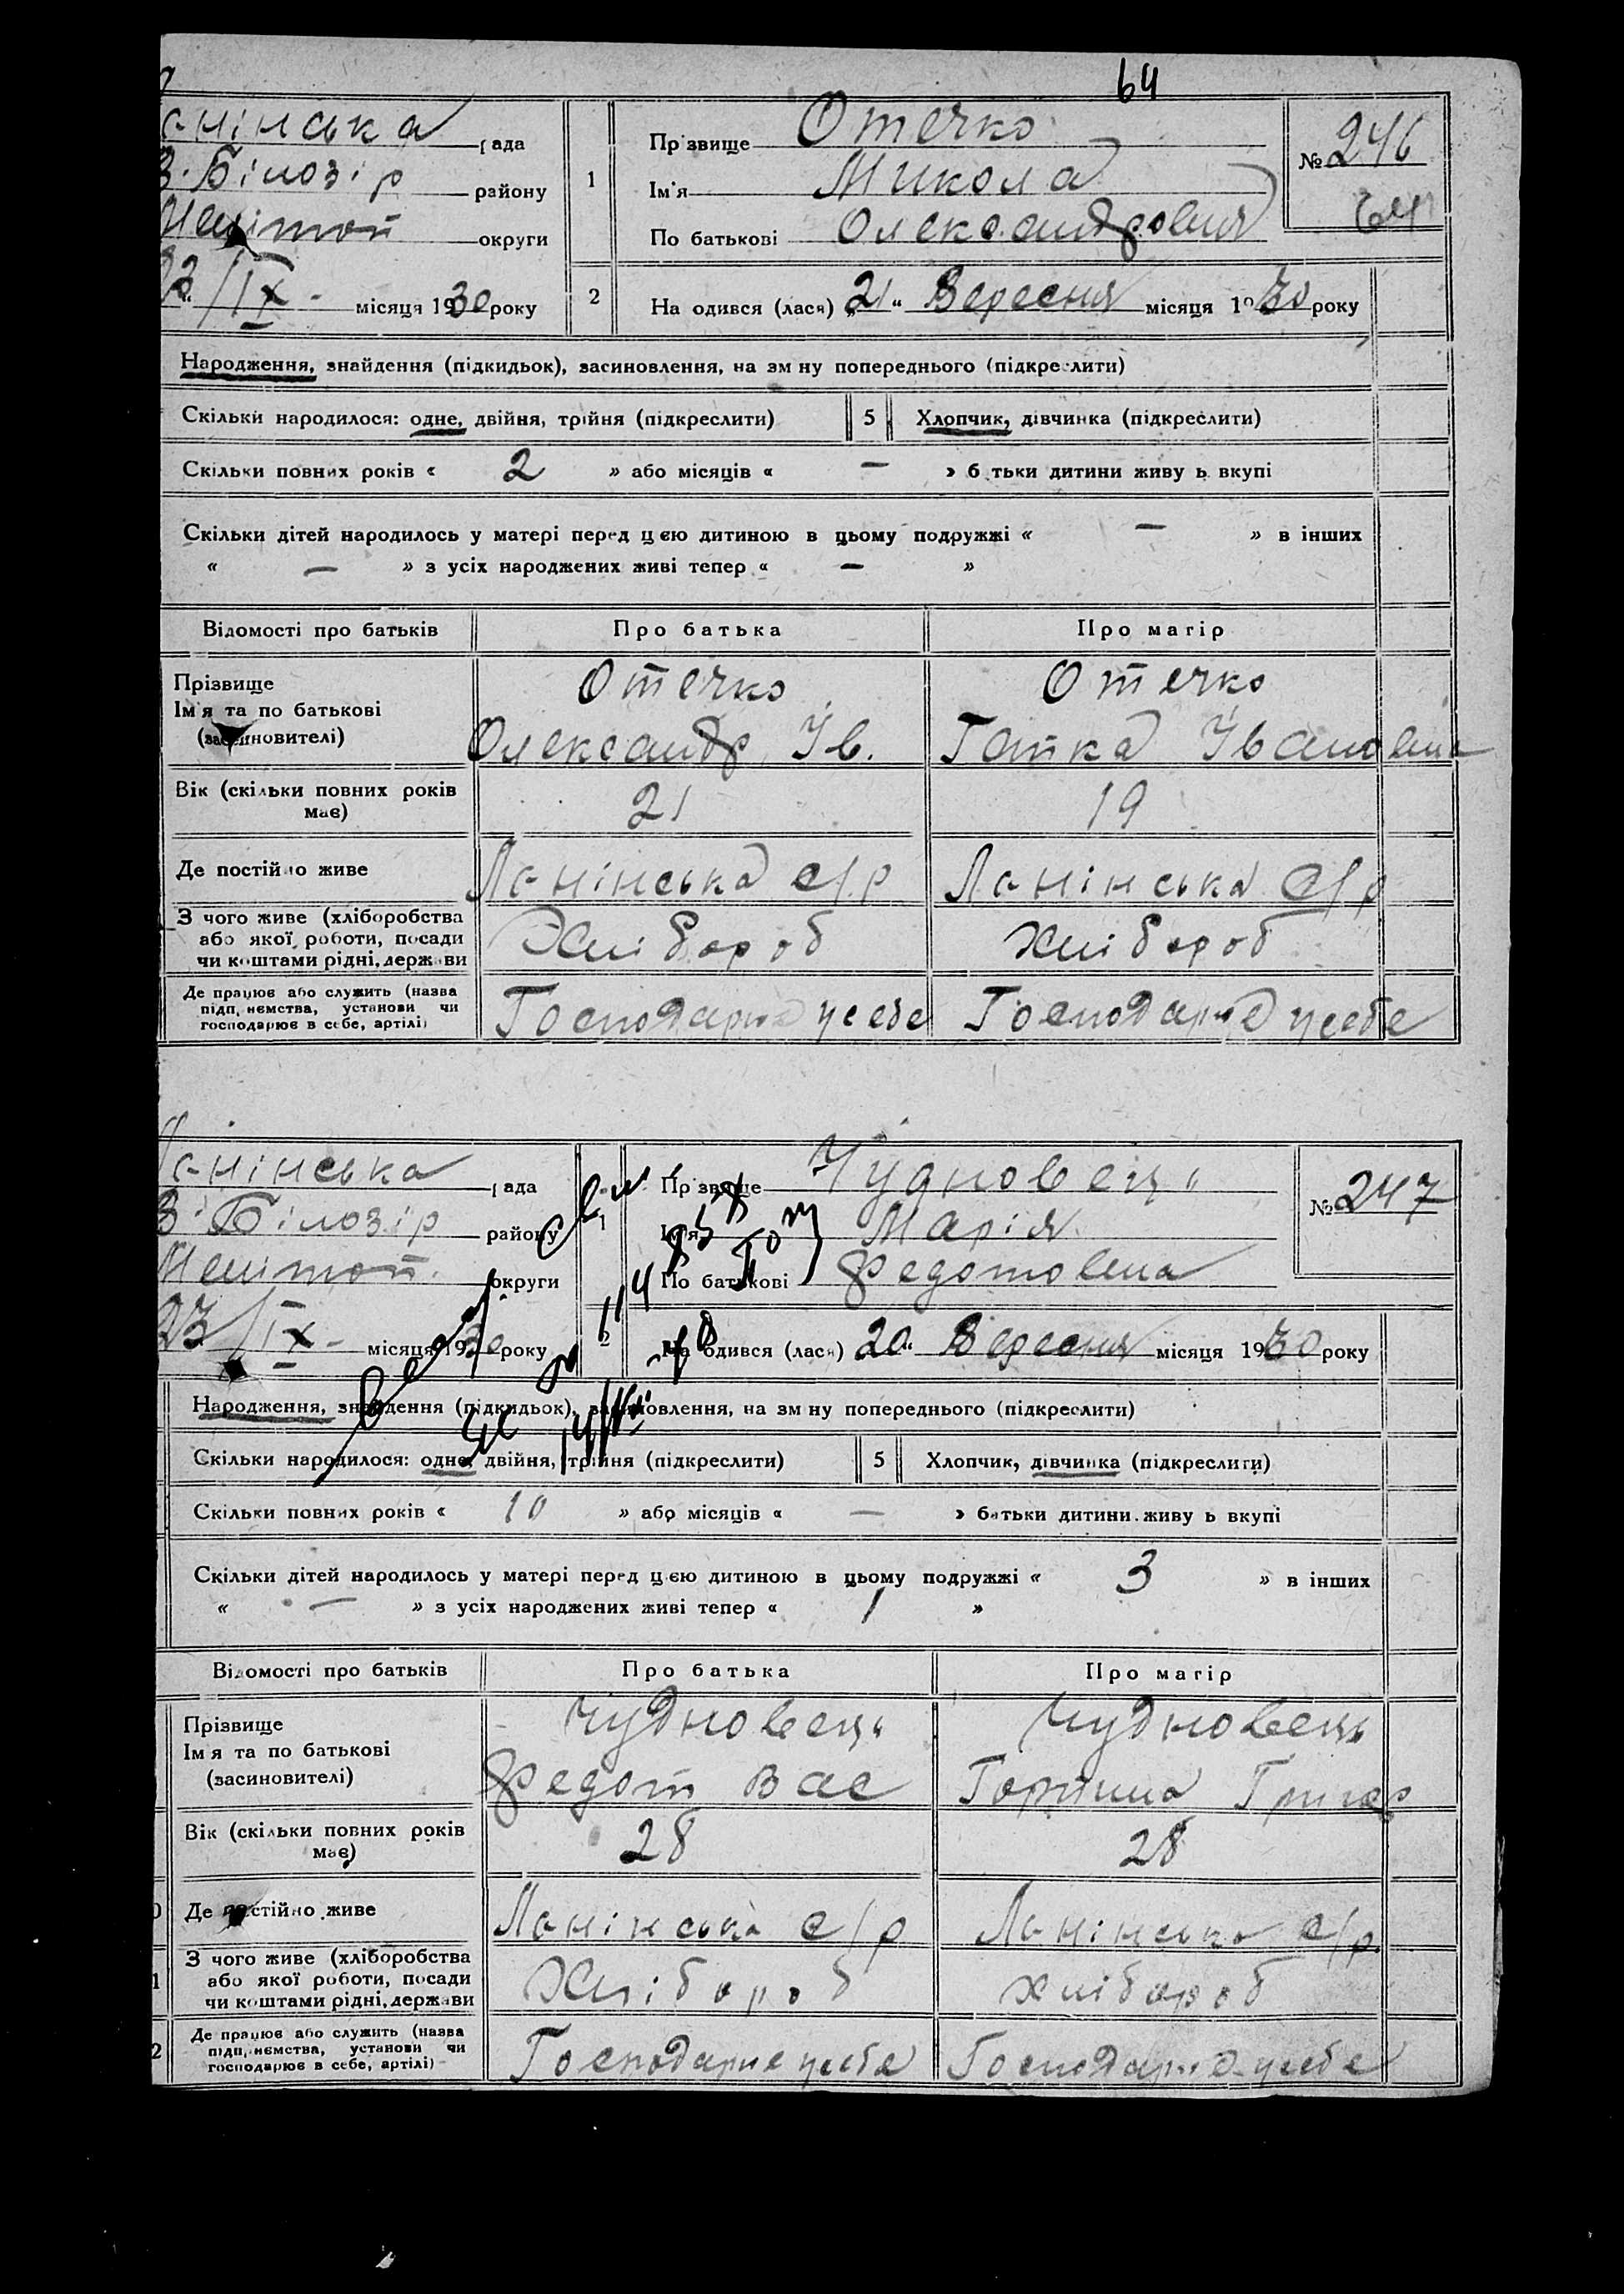 64
рада
В. Білозір району
округи
/IX - місяця 1930 року
1
Прізвище Отечко
Ім'я Микола
По батькові Олександрович
№ 246
64
2 На одився (лася) „21“ Вересня місяця 1930 року
Народження, знайдення (підкидьок), засиновлення, на зм ну попереднього (підкреслити)
Скільки народилося: одне, двійня, трійня (підкреслити) 5 Хлопчик, дівчинка (підкреслити)
Скільки повних років « 2 » або місяців « — » б тьки дитини живу ь вкупі
Скільки дітей народилось у матері перед цією дитиною в цьому подружжі « — » в інших
« — » з усіх народжених живі тепер « — »
Відомості про батьків Про батька Про матір
Прізвище Отечко Отечко
Ім'я та по батькові Олександр Ів. Гапка Івановна
(засиновителі)
Вік (скільки повних років має) 21 19
Де постійно живе Ланінська с/р Ланінська с/р
З чого живе (хліборобства
або якої роботи, посади Хлібороб Хлібороб
чи коштами рідні, держави
Де працює або служить (назва
підп, немства, установи чи
господарює в себе, артілі) Господарює усебе Господарює усебе
Ланінська рада
В. Білозір району
округи
23/IX - місяця 1930 року
1
Прізвище Чудновець
Ім'я Марія
По батькові Федотовна
№ 247
2 На одився (лася) 20“ Вересня місяця 1930 року
Народження, знайдення (підкидьок), засиновлення, на зм ну попереднього (підкреслити)
Скільки народилося: одне, двійня, трійня (підкреслити) 5 Хлопчик, дівчинка (підкреслити)
Скільки повних років « 10 » або місяців « — » батьки дитини живу ь вкупі
Скільки дітей народилось у матері перед цією дитиною в цьому подружжі « 3 » в інших
« — » з усіх народжених живі тепер « 1 »
Відомості про батьків Про батька Про матір
Прізвище Чудновець Чудновець
Ім'я та по батькові Федот Вас Григор
(засиновителі)
Вік (скільки повних років має) 28 28
Де постійно живе Ланінська с/р Ланінська с/р
З чого живе (хліборобства
або якої роботи, посади Хлібороб Хлібороб
чи коштами рідні, держави
Де працює або служить (назва
підп, немства, установи чи
господарює в себе, артілі) Господарює усебе Господарює усебе